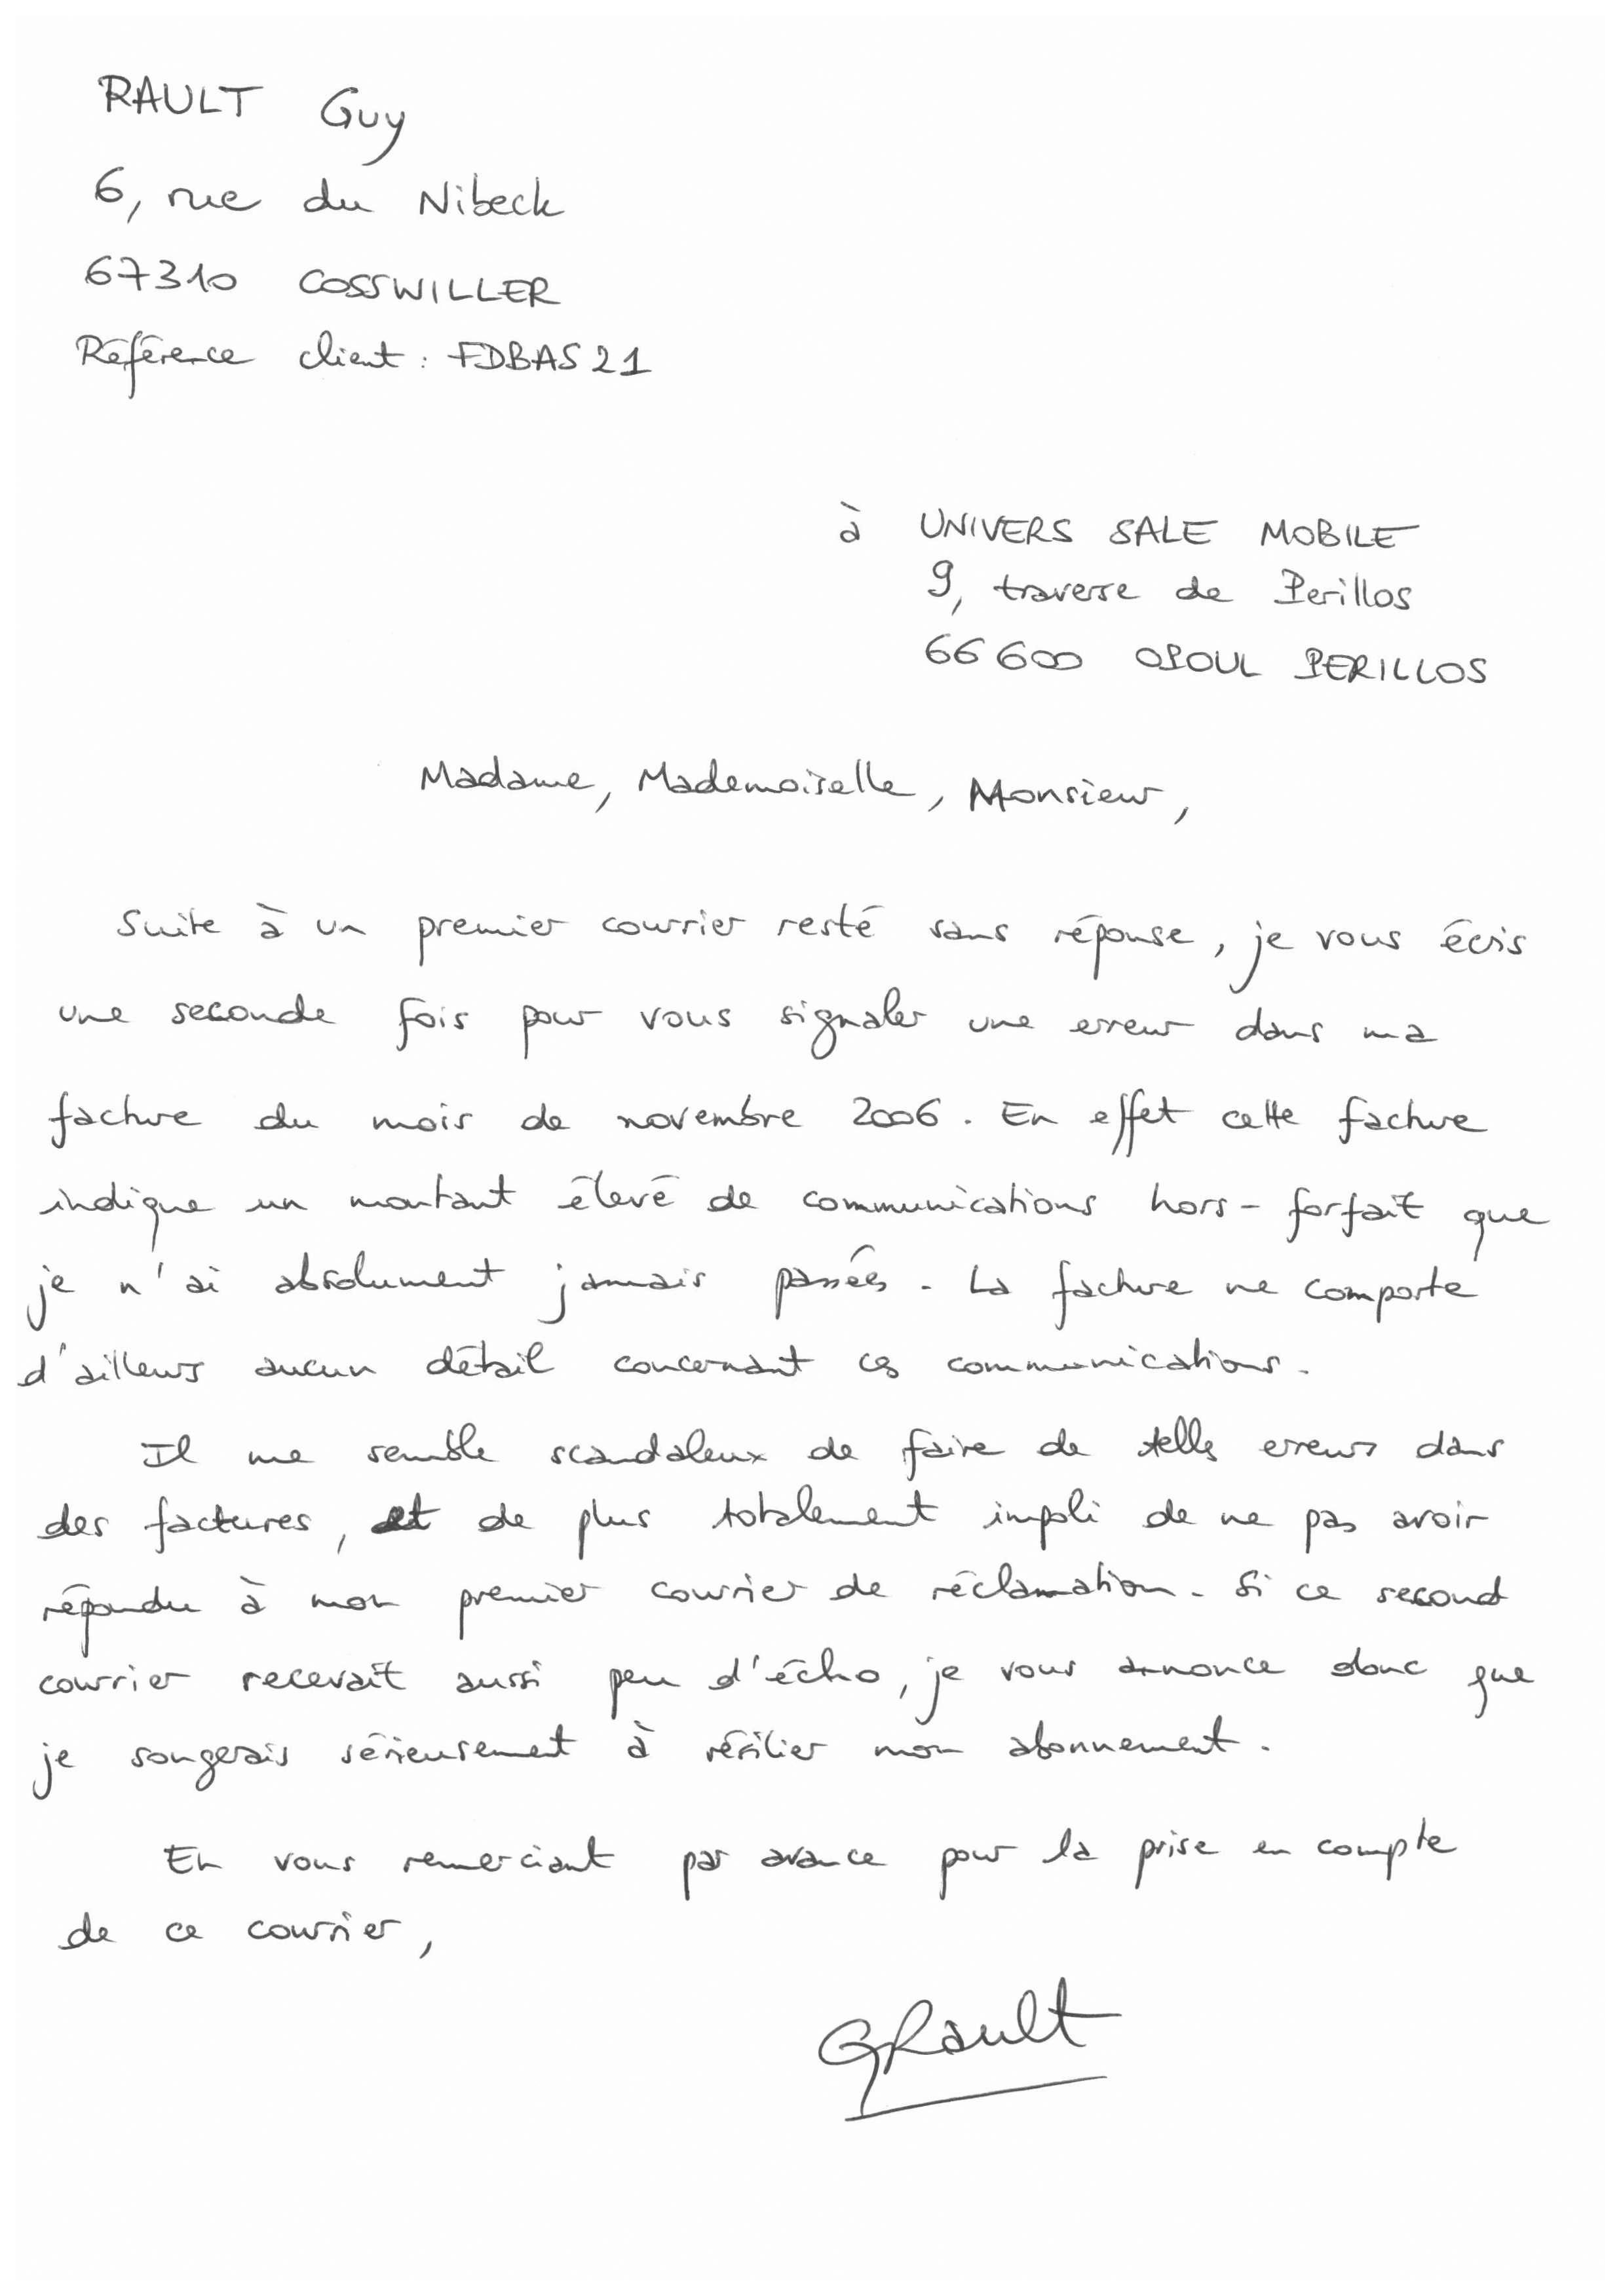 RAULT Guy
6, rue du Nibeck
67310 COSSWILLER
Référence client : FDBAS21
à UNIVERS SALE MOBILE
9, traverse de Perillos
66600 OPOUL PERILLOS
Madame, Mademoiselle, Monsieur,
Suite à un premier courrier resté sans réponse, je vous écris
une seconde fois pour vous signaler une erreur dans ma
facture du mois de novembre 2006. En effet cette facture
indique un montant élevé de communications hors-forfait que
je n'ai absolument jamais passées. La facture ne comporte
d'ailleurs aucun détail concernant ces communications.
Il me semble scandaleux de faire de telles erreurs dans
des factures, et de plus totalement impoli de ne pas avoir
répondu à mon premier courrier de réclamation. Si ce second
courrier recevait aussi peu d'écho, je vous annonce donc que
je songerais sérieusement à résilier mon abonnement.
En vous remerciant par avance pour la prise en compte
de ce courrier,
GRault